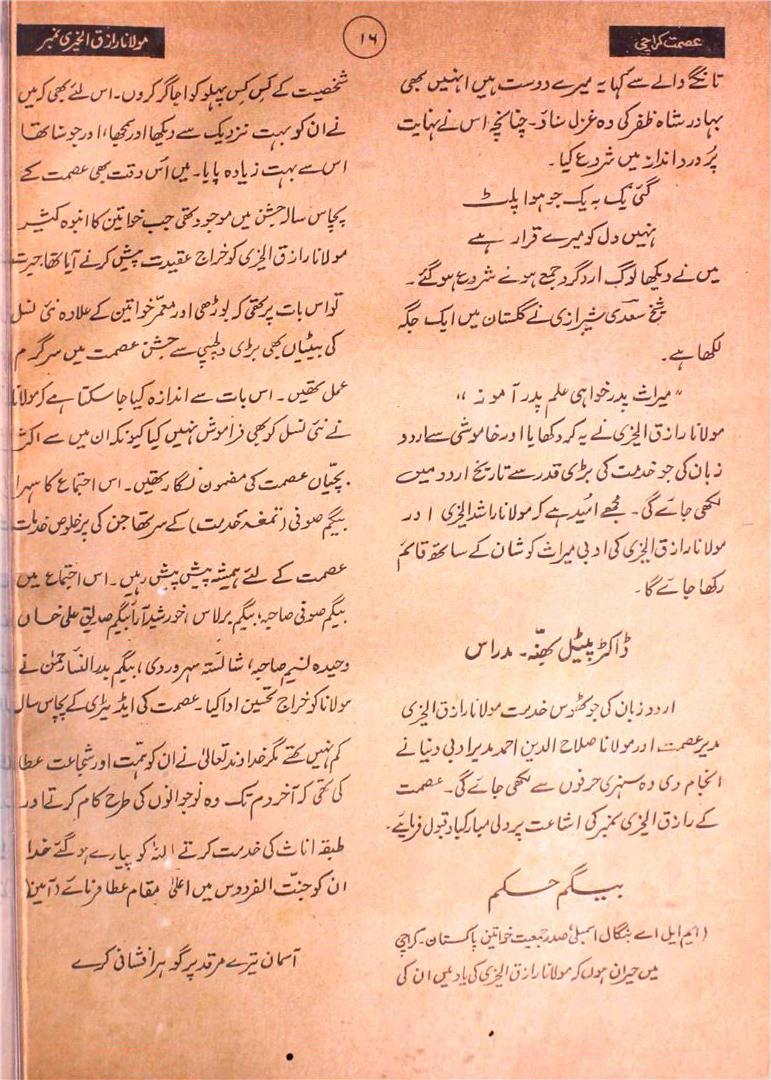 عصمت کراچی
۱۶
مولانا رازق الخیری نمبر
تانگے والے سے کہا یہ میرے دوست ہیں انہیں بھی
بہادر شاہ ظفر کی وہ غزل سنادے۔ چنانچہ اس نے نہایت
پُر درد انداز میں شروع کیا۔
گئی یک بہ یک جو ہوا پلٹ
نہیں دل کو میرے قرار ہے
میں نے دیکھا لوگ اردگرد جمع ہونے شروع ہوگئے۔
شیخ سعدی شیرازی نے گلستان میں ایک جگہ
لکھا ہے۔
"میراث پدر خواہی علم پدر آموز"
مولانا رازق الخیری نے یہ کر دکھایا اور خاموشی سے اردو
زبان کی جو خدمت کی بڑی قدر سے تاریخ اردو میں
لکھی جائے گی۔ مجھے امید ہے کہ مولانا راشد الخیری اور
مولانا رازق الخیری کی ادبی میراث کو شان کے ساتھ قائم
رکھا جائے گا۔
ڈاکٹر پیٹل کھنّہ۔ مدراس
اردو زبان کی جو ٹھوس خدمت مولانا رازق الخیری
مدیر عصمت اور مولانا صلاح الدین احمد مدیر ادبی دنیا نے
انجام دی وہ سنہری حرفوں سے لکھی جائے گی۔ عصمت
کے رازق الخیری نمبر کی اشاعت پر دلی مبارکباد قبول فرمایئے۔
بیگم حکم
(ایم ایل اے بنگال اسمبلی صدر جمعیت خواتین پاکستان۔ کراچی
میں حیران ہوں کہ مولانا رازق الخیری کی یاد میں ان کی
شخصیت کے کس کس پہلو کو اجاگر کروں۔ اس لئے بھی کہ میں
نے ان کو بہت نزدیک سے دیکھا اور سمجھا، اور جو سنا تھا
اس سے بہت زیادہ پایا۔ میں اس وقت بھی عصمت کے
پچاس سالہ جشن میں موجود تھی جب خواتین کا انبوہ کثیر
مولانا رازق الخیری کو خراج عقیدت پیش کرنے آیا تھا حیرت
تو اس بات پر تھی کہ بوڑھی اور معمر خواتین کے علاوہ نئی نسل
کی بیٹیاں بھی بڑی دلچسپی سے جشن عصمت میں سرگرم
عمل تھیں۔ اس بات سے اندازہ کیا جا سکتا ہے کہ مولانا
نے نئی نسل کو بھی فراموش نہیں کیا کیونکہ ان میں سے اکثر
بچیاں عصمت کی مضمون نگار تھیں۔ اس اجتماع کا سہرا
بیگم صوفی (تمغہ خدمت) کے سر تھا جن کی پرخلوص خدمات
عصمت کے لئے ہمیشہ پیش پیش رہیں۔ اس اجتماع میں
بیگم صوفی صاحبہ، بیگم برلاس، خورشید آرا بیگم صدیق علی خاں
وحیدہ نسیم صاحبہ، شائستہ سہروردی، بیگم بدرالنساء رحمٰن نے
مولانا کو خراج تحسین ادا کیا۔ عصمت کی ایڈیٹری کے پچاس سال
کم نہیں تھے مگر خداوند تعالیٰ نے ان کو ہمت اور شجاعت عطا
کی تھی کہ آخر دم تک وہ نوجوانوں کی طرح کام کرتے اور
طبقہ اناث کی خدمت کرتے اللہ کو پیارے ہو گئے خدا
ان کو جنت الفردوس میں اعلیٰ مقام عطا فرمائے (آمین)
آسمان تیرے مرقد پر گوہر افشانی کرے